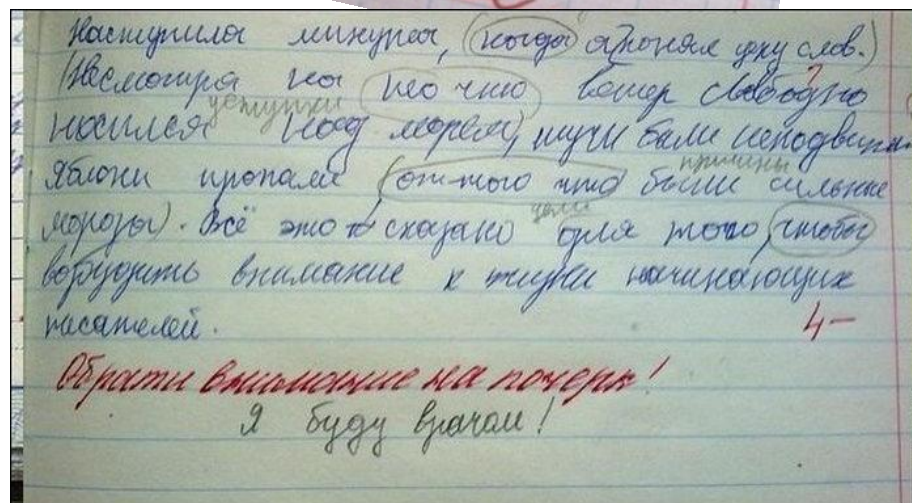 Наступила минута, (когда я понял цену слов.)
(Несмотря на то что ветер свободно
уступки
носился над морем), тучи были неподвижн
причины
Яблони пропали (оттого что были сильные
цели
морозы). Всё это сказано для того, чтобы
возбудить внимание к жизни начинающих
писателей.
4-
Обрати внимание на почерк!
Я буду врачом!